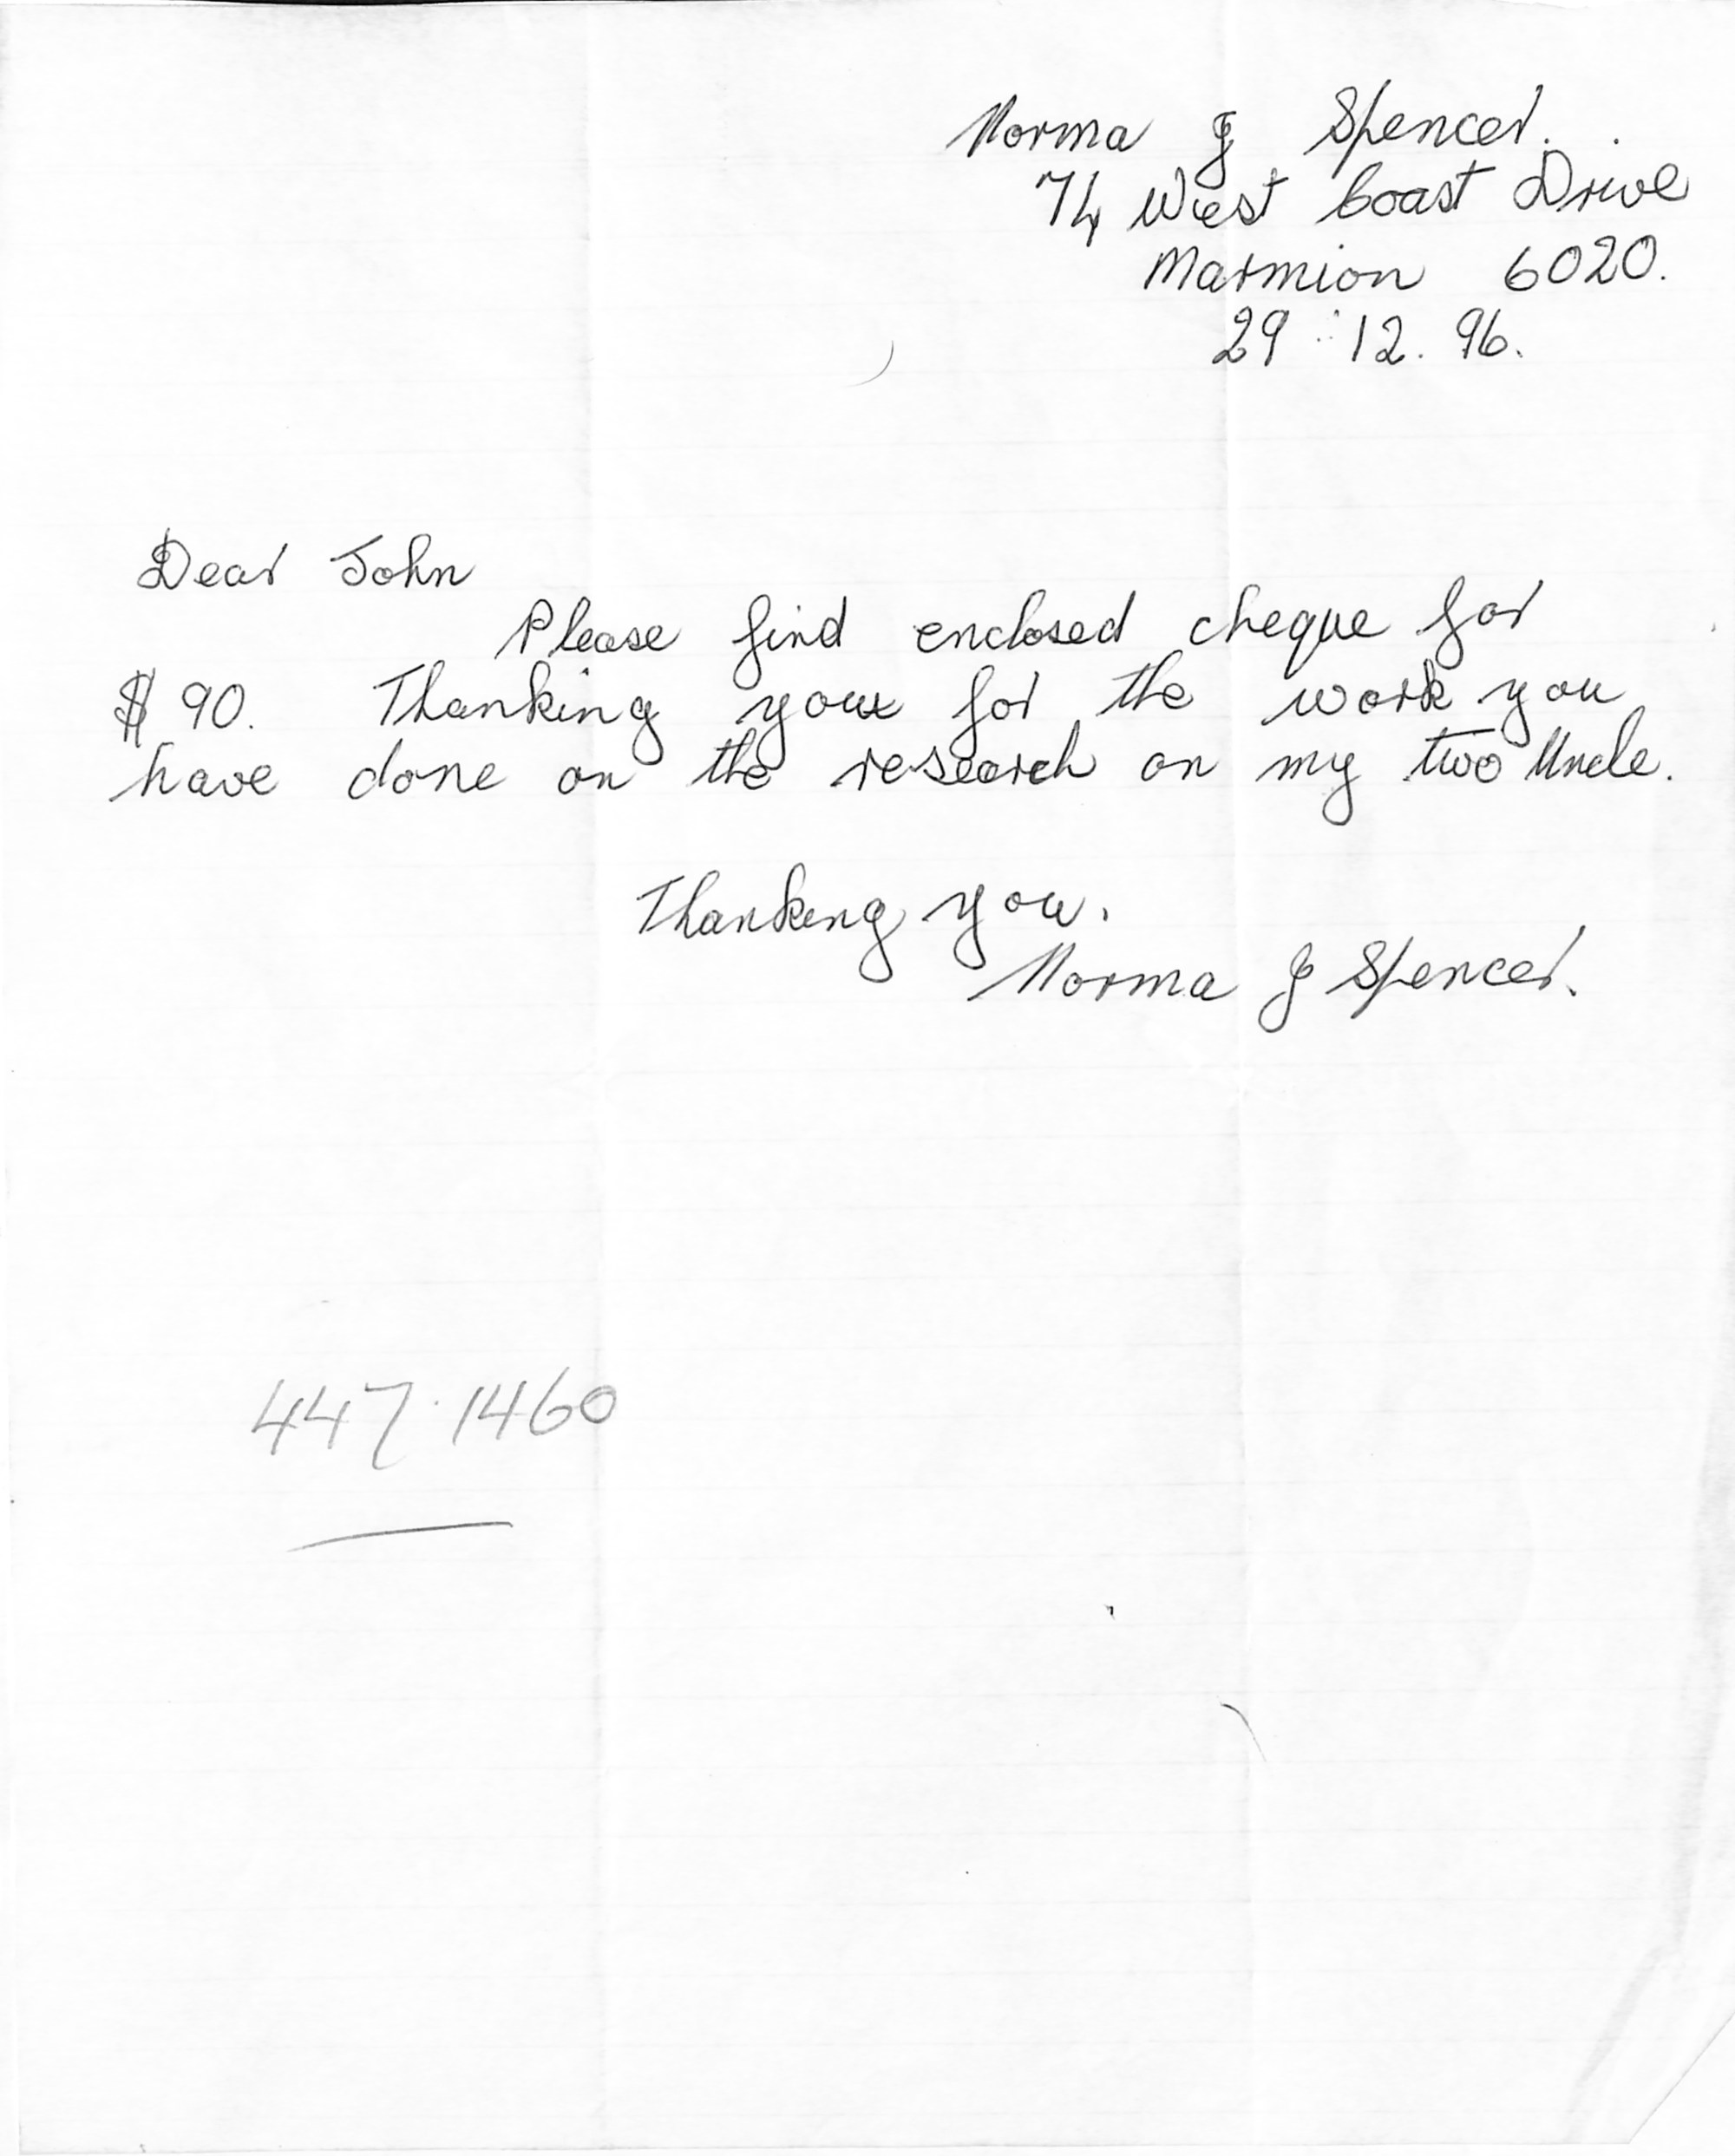 Norma J Spencer.
74 West Coast Drive
Marmion 6020.
29.12.96.
Dear John
Please find enclosed cheque for
$90. Thanking you for the work you
have done on the research on my two Uncle.
Thanking you.
Norma J Spencer.
447.1460